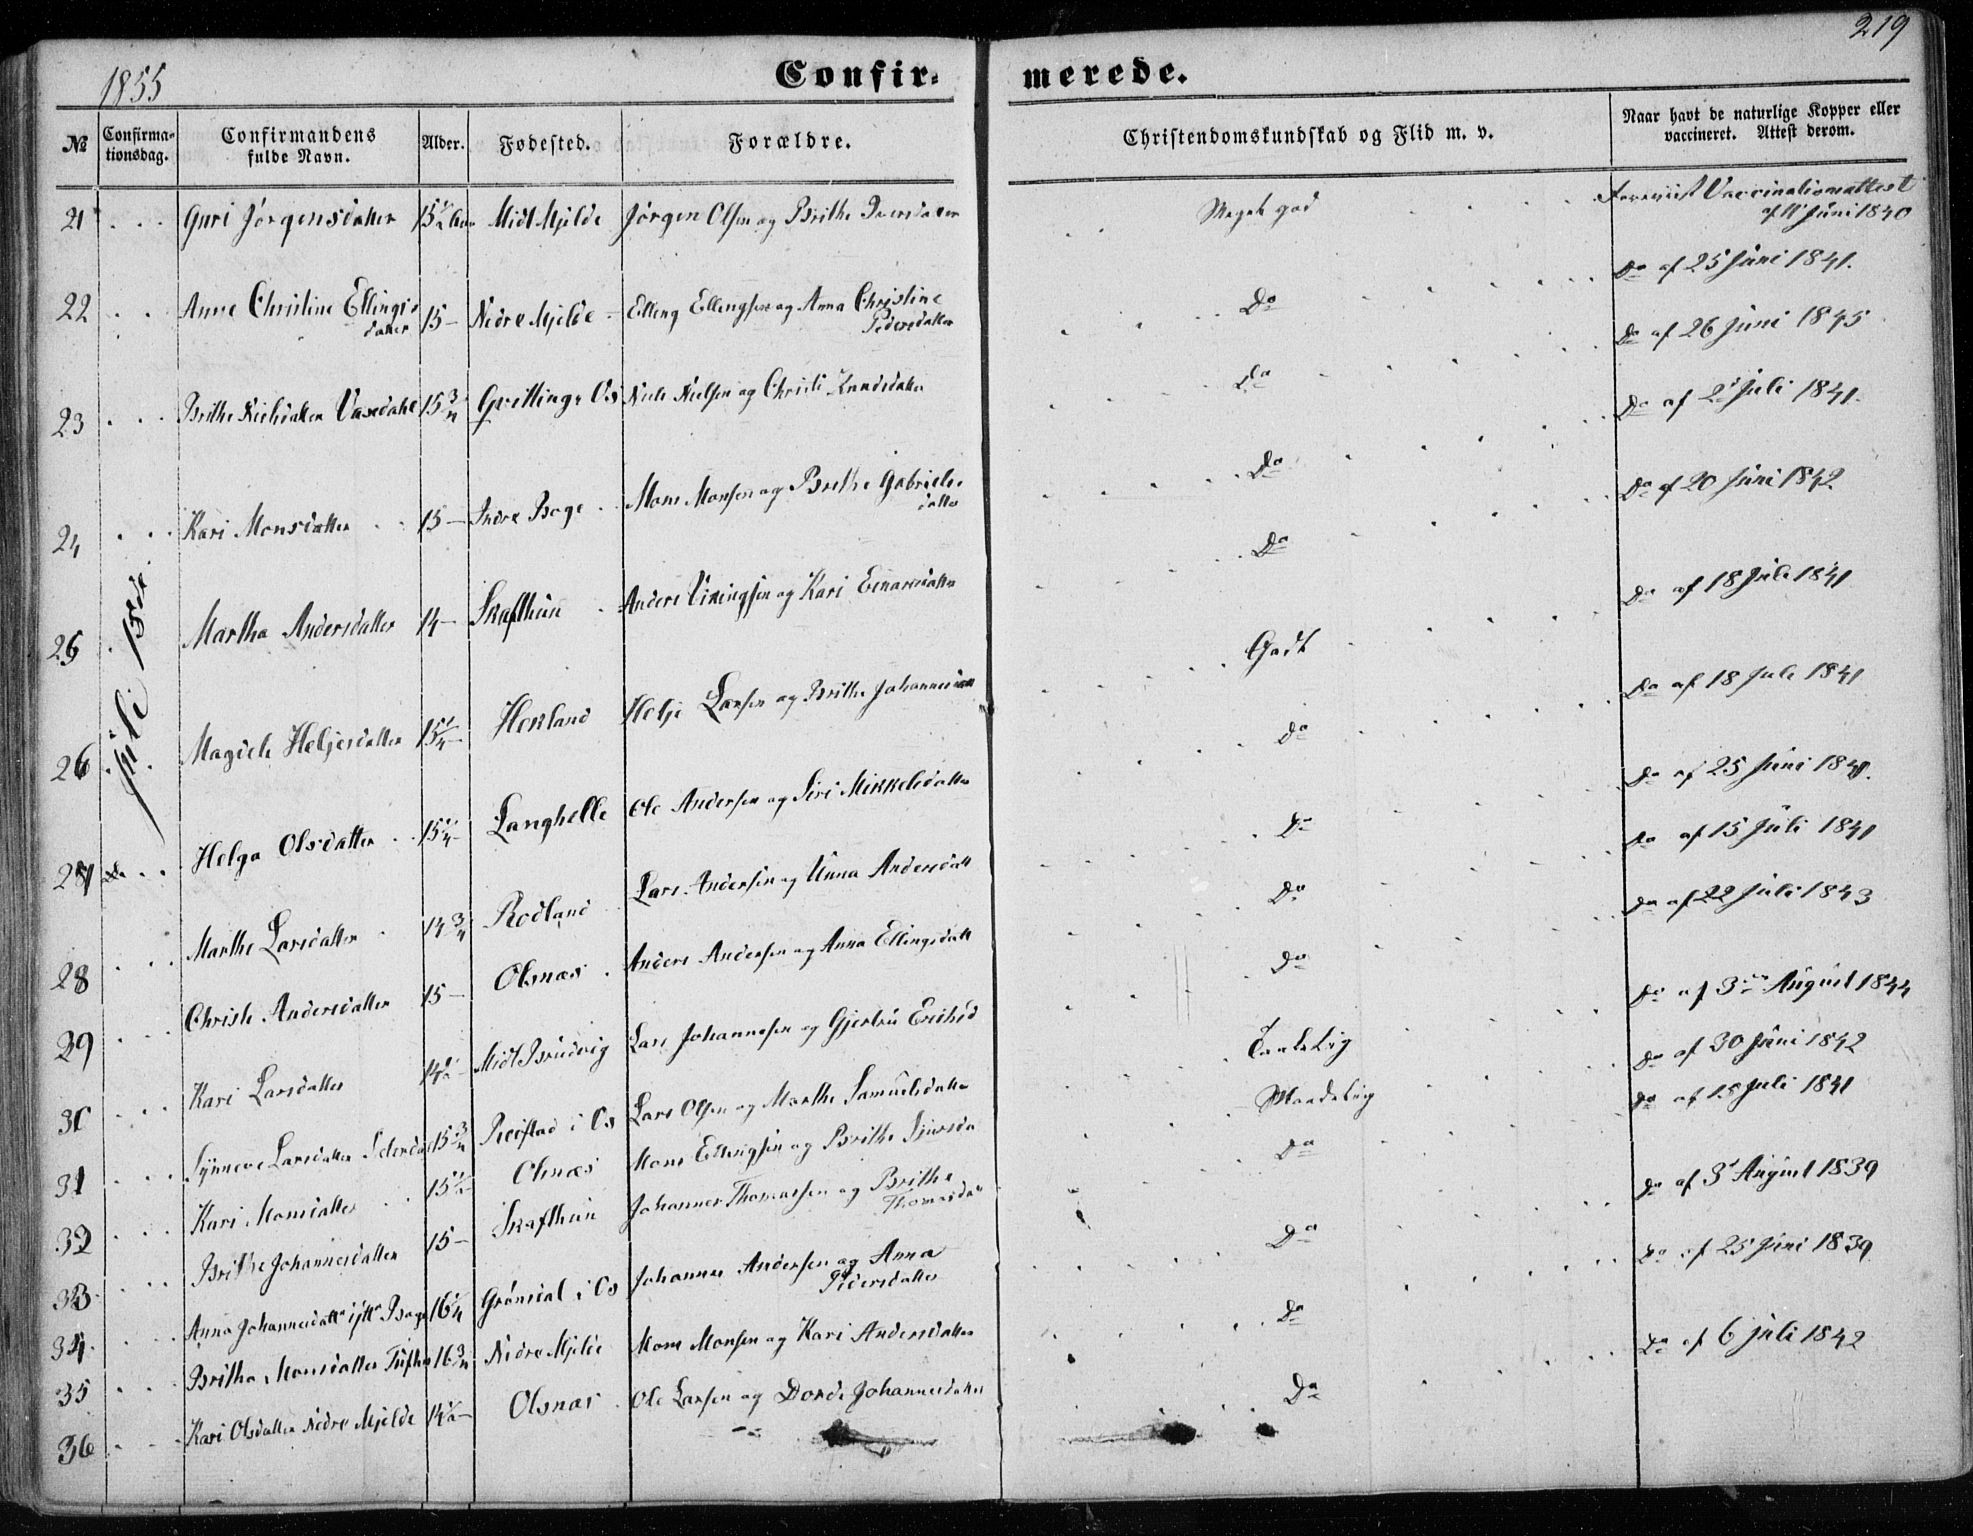 219
1855
Confir-merede.
№ Confirmationsdag. Confirmandens fulde Navn. Alder. Fødested. Forældre. Christendomskundskab og Flid m. v. Naar havt de naturlige Kopper eller vaccineret. Attest derom.
21 Guri Jörgensdatter 15½ Aar Midt Mjelde Jörgen Olsen og Brithe Iversdatter Meget god Foreviist Vaccinationsattest af 11 Juni 1840
22 Anne Christine Ellings-datter 15 Nedre Mjelde Elling Ellingsen og Anna Christine Pedersdatter Do Do af 25 Juni 1841.
23 Brithe Nielsdatter Vaxdahl 15¾ Gvitting, Os Niels Nielsen og Christi Knudsdatter Do Do af 26 Juni 1845
24 Kari Monsdatter 15 Indre Boge Mons Monsen og Brithe Gabriels-datter Do Do af 2 Juli 1841.
25 Martha Andersdatter 14 Skafthun Anders Vikingsen og Kari Einarsdatter Do Do af 20 Juni 1842
26 Magdele Heljesdatter 15¼ Hokland Helje Larsen og Brithe Johannesdatt Godt Do af 18 Juli 1841
27 Do Helga Olsdatter 15¼ Langhelle Ole Andersen og Siri Mikkelsdatter Do Do af 18 Juli 1841
28 Marthe Larsdatter 14¾ Rödland Lars Andersen og Unna Andersdatt Do Do af 25 Juni 1841.
29 Christi Andersdatter 15 Olsnæs Anders Andersen og Anna Ellingsdatt Do Do af 15 Juli 1841
30 Kari Larsdatter 14½ Midt Bruvig Lars Johannesen og Gjertru Erichsd Do Do af 22 Juli 1843
31 Synneve Larsdatter 15¾ Reistad i Os Lars Olsen og Marthe Samuelsdatter Taalelig Do af 3 August 1844
32 Kari Monsdatter 15½ Olsnæs Mons Ellingsen og Brithe Maadelig Do af 30 Juni 1842
33 Brithe Johannesdatter 15 Skafthun Johannes Thomassen og Brithe Thomasdatt Do Do af 15 Juli 1841
34 Anna Johannesdatter Boge 16¼ Grönsdal i Os Johannes Andersen og Anna Pedersdatter Do Do af 3 August 1839
35 Britha Monsdatter 16¾ Nedre Mjelde Mons Monsen og Kari Andersdatter Do Do af 25 Juni 1839
36 Kari Olsdatter Nedre Mjelde 14½ Olsnæs Ole Larsen og Dorde Johannesdatter Do Do af 6 Juli 1842